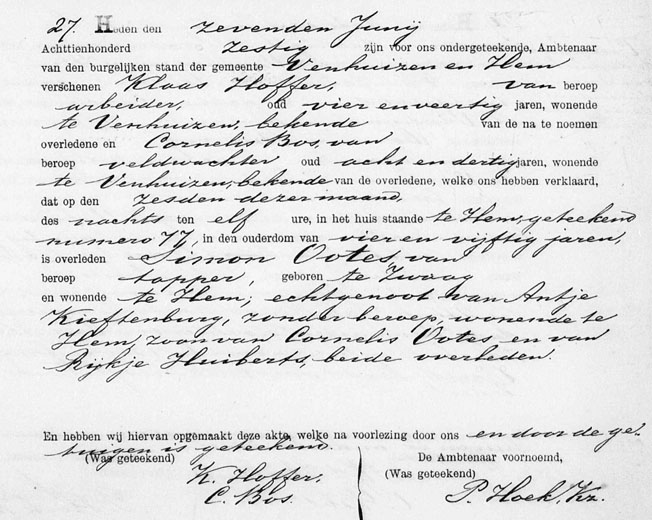 27. Heden den zevenden Junij
Achttienhonderd zestig zijn voor ons ondergeteekende, Ambtenaar
van den burgelijken stand der gemeente Venhuizen en Hem
verschenen Klaas Hoffer, van beroep
arbeider, oud vier en veertig jaren, wonende
te Venhuizen, bekende van de na te noemen
overledene en Cornelis Bos, van
beroep veldwachter oud acht en dertig jaren, wonende
te Venhuizen, bekende van de overledene, welke ons hebben verklaard,
dat op den zesden dezer maand,
des nachts ten elf ure, in het huis staande te Hem, geteekend
numero 77, in den ouderdom van vier en vijftig jaren,
is overleden Simon Ootes, van
beroep tapper, geboren te Zwaag
en wonende te Hem; echtgenoot van Antje
Kieftenburg, zonder beroep, wonende te
Hem, zoon van Cornelis Ootes en van
Rijkje Huiberts, beide overleden.
En hebben wij hiervan opgemaakt deze akte, welke na voorlezing door ons en door de ge-
tuigen is geteekend.
(Was geteekend) De Ambtenaar voornoemd,
K. Hoffer. (Was geteekend)
C. Bos. P. Hoek, Kz.